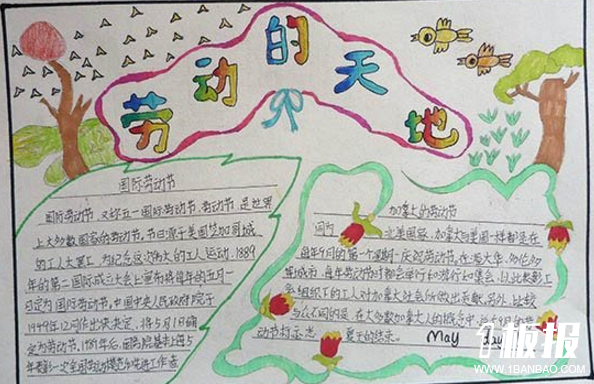 劳动的天地
国际劳动节
国际劳动节,又称五一国际劳动节、劳动节,是世界
上大多数国家的劳动节。节日源于美国芝加哥城
的工人大罢工,为纪念这次伟大的工人运动,1889
年的第二国际成立大会上宣布将每年的五月一
日定为国际劳动节。中国中央人民政府政务院于
1949年12月作出决定,将5月1日确
定为劳动节。1989年后,国务院基本上每5
年表彰一次全国劳动模范和先进工作者
加拿大的劳动节
同为北美国家,加拿大与美国一样都是在
每年9月的第一个星期一庆祝劳动节。在渥太华、多伦多
等城市,每年劳动节时都会举行和游行和集会,以此表彰工
会组织下的工人对加拿大社会所做出贡献。另外,比较
与众不同的是,在大多数加拿大人的概念中,过去9月的劳
动节标志志夏天的结束。
May day
1板报
WWW.1BANBAO.COM